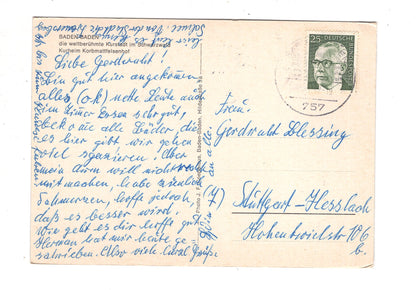 BADEN-BADEN
die weltberühmte Kurstadt im Schwarzwald
Kurheim Korbmattfelsenhof
Liebe Gerdwahl!
Bin gut hier angekommen
alles (o.k) nette Leute auch
im Zimer Essen sehr gut,
bekome alle Bäder, die
es hier gibt wir gehen
viel spazieren. Aber
mein Arm will nicht recht
mitmachen, habe
Schmerzen, hoffe jedoch,
daß es besser wird.
Wie geht es dir hoffe gut
Herman hat mir heute ge-
schrieben. Also viele
25
DEUTSCHE
757
Frau
Gerdwahl Blessing
(7) Stuttgart-Heslach
Hohentwielstr 106
b.